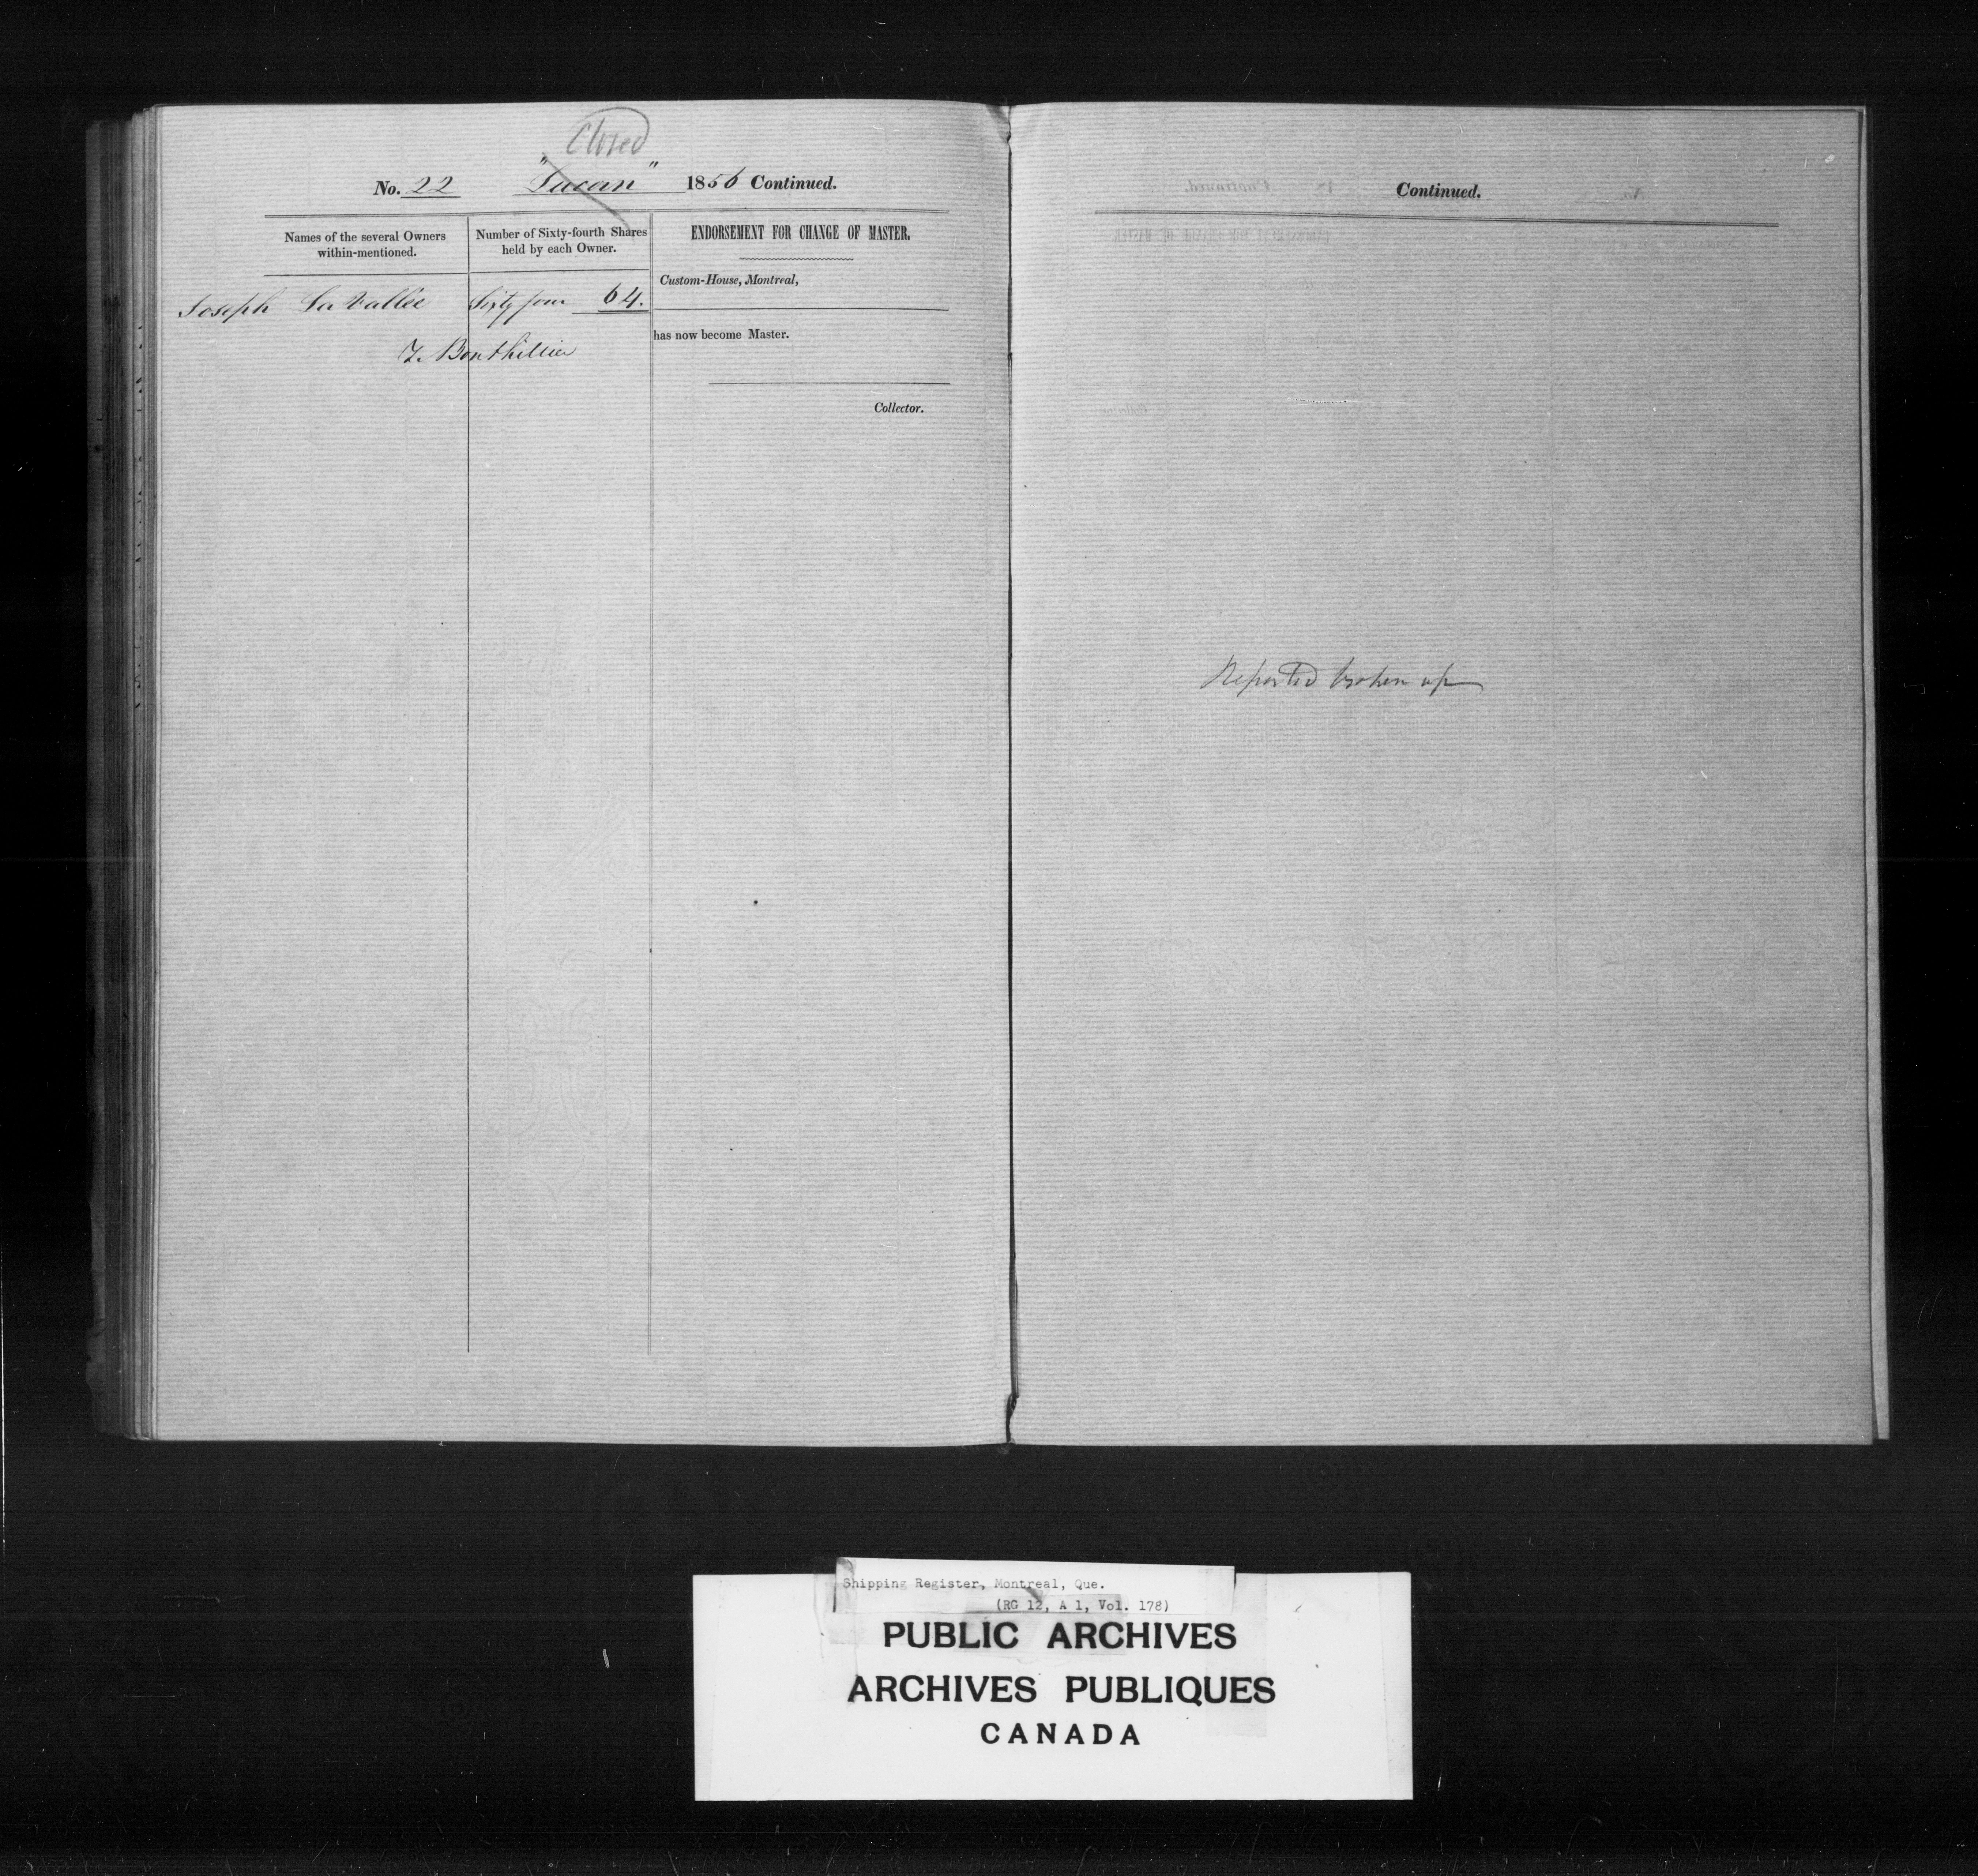 Closed
No. 22 "Lucan" 1856 Continued.
Names of the several Owners within-mentioned.
Number of Sixty-fourth Shares held by each Owner.
ENDORSEMENT FOR CHANGE OF MASTER.
Joseph La Vallée Sixty four 64.
T. Bouthillier
Custom-House, Montreal,
has now become Master.
Collector.
Continued.
Reported broken up
Shipping Register, Montreal, Que.
(RG 12, A 1, Vol. 178)
PUBLIC ARCHIVES
ARCHIVES PUBLIQUES
CANADA